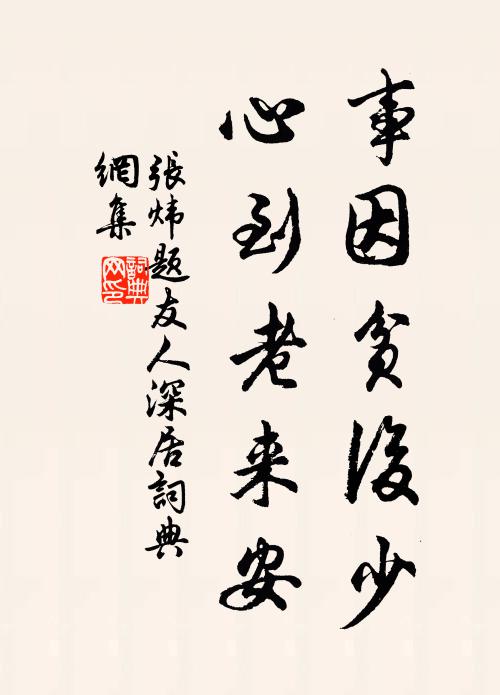 事因贫後少
心到老来安
張炜题友人深居詞典
網集
詞典
网印